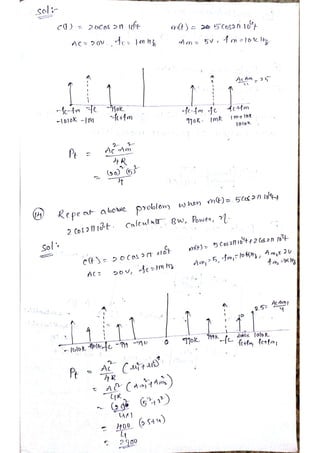 Sol:-
c(t) = 20cos 2π 10⁶t m(t) = 5cos2π 10⁴t
Ac = 20V, fc = 1mHz Am = 5V, fm = 10kHz
AcAm/4 = 25
-fc-fm -fc 990k -fc-fm -fc fc+fm
-1010k -1m -fc+fm 990k 1mk 1m+10k
1010k
Pt = Ac² Am² / 4R
= (20)² (5)² / 4
(14) Repeat above problem when m(t) = 5cos2π 10⁴t
2cos2π10³t. Calculate BW, Power, η.
Sol:
c(t) = 20cos2π 10⁶t m(t) = 5cos2π10⁴t+2cos2π10³t
Ac = 20V, fc = 1mHz Am₁=5, fm₁=10kHz, Am₂=2V
2.5= AcAm₁/4
-1010k -fc 0 990k -fc 1010k
fc+fm₂ fc+fm₁
Pt = Ac²/4R (
= Ac²/4R (Am₁²+Am₂²)
= (20)²/4×1 (5²+2²)
= 400/4 (25+4)
= 2900